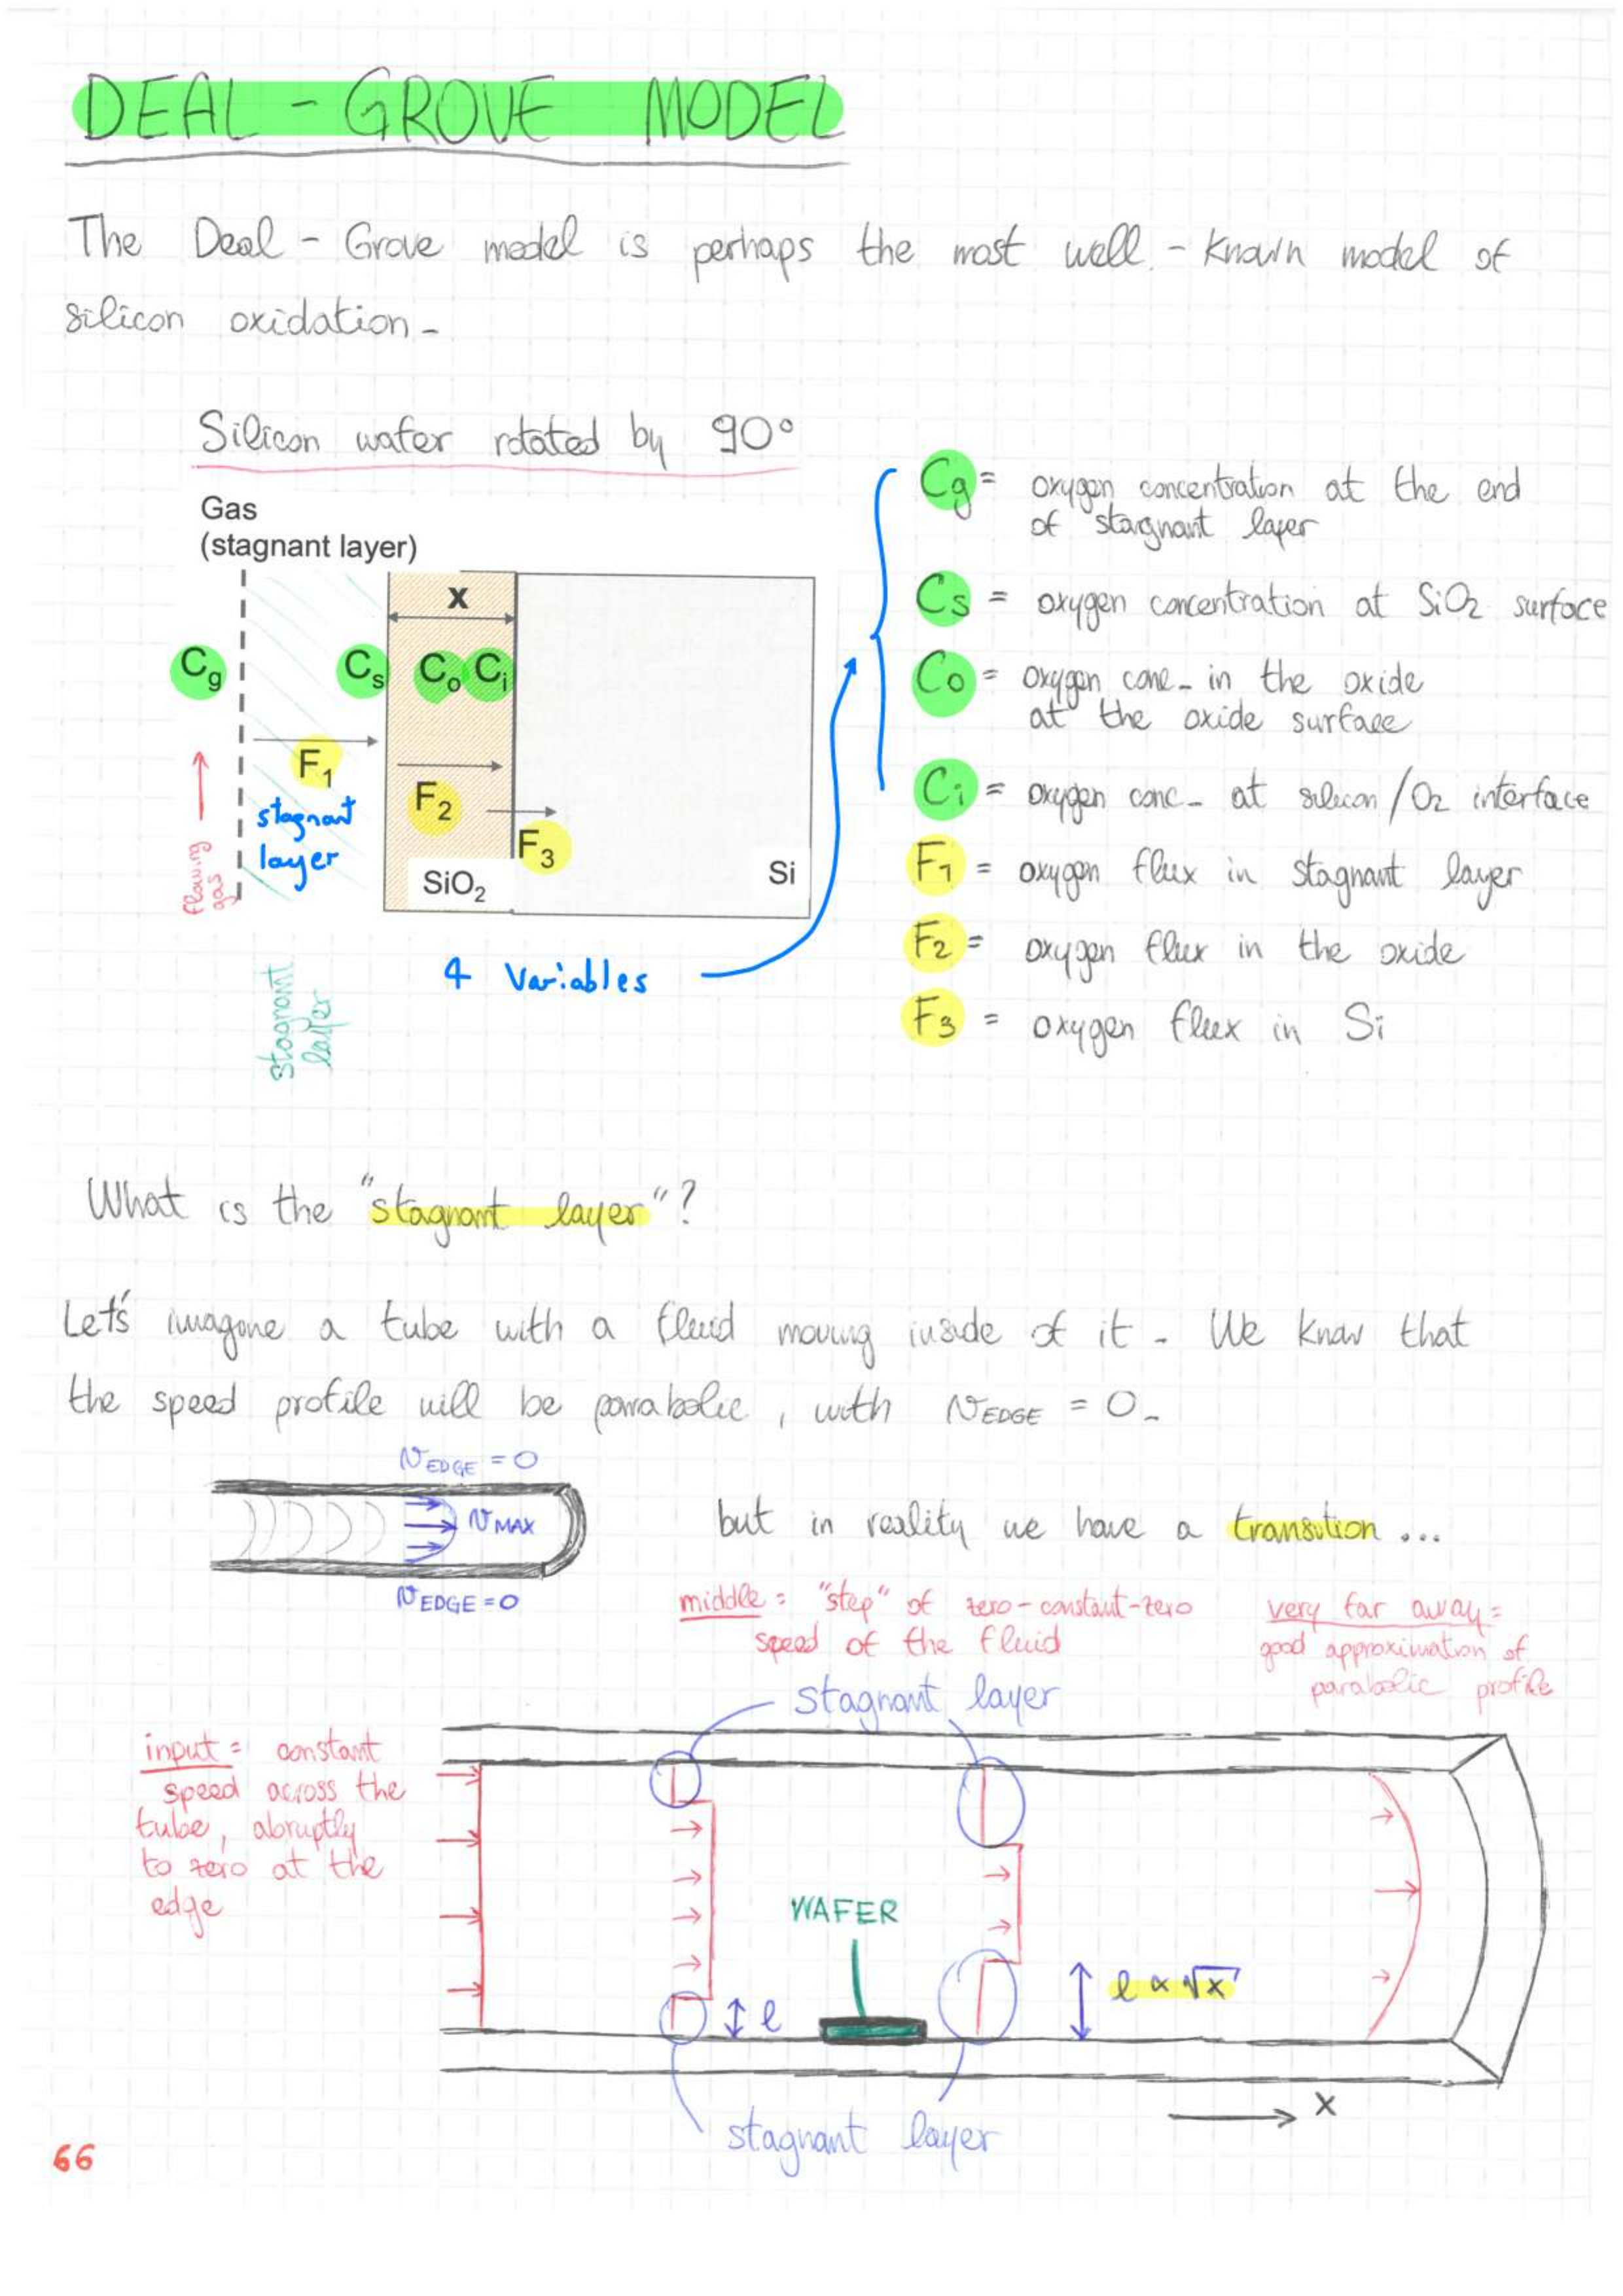 DEAL - GROVE MODEL
The Deal - Grove model is perhaps the most well - known model of
silicon oxidation -
Silicon wafer rotated by 90°
Gas
(stagnant layer)
x
Cg
Cs
Co
Ci
F1
F2
F3
stagnant
layer
flowing
gas
SiO2
Si
stagnant
layer
4 Variables
Cg = oxygen concentration at the end
of stagnant layer
Cs = oxygen concentration at SiO2 surface
Co = oxygen conc - in the oxide
at the oxide surface
Ci = oxygen conc - at silicon / O2 interface
F1 = oxygen flux in stagnant layer
F2 = oxygen flux in the oxide
F3 = oxygen flux in Si
What is the "stagnant layer"?
Let's imagine a tube with a fluid moving inside of it - We know that
the speed profile will be parabolic, with vEDGE = 0 -
vEDGE = 0
vMAX
vEDGE = 0
but in reality we have a transition ...
middle = "step" of zero-constant-zero
speed of the fluid
very far away =
good approximation of
parabolic profile
stagnant layer
input = constant
speed across the
tube, abruptly
to zero at the
edge
WAFER
l
l ∝ √x
x
stagnant layer
66